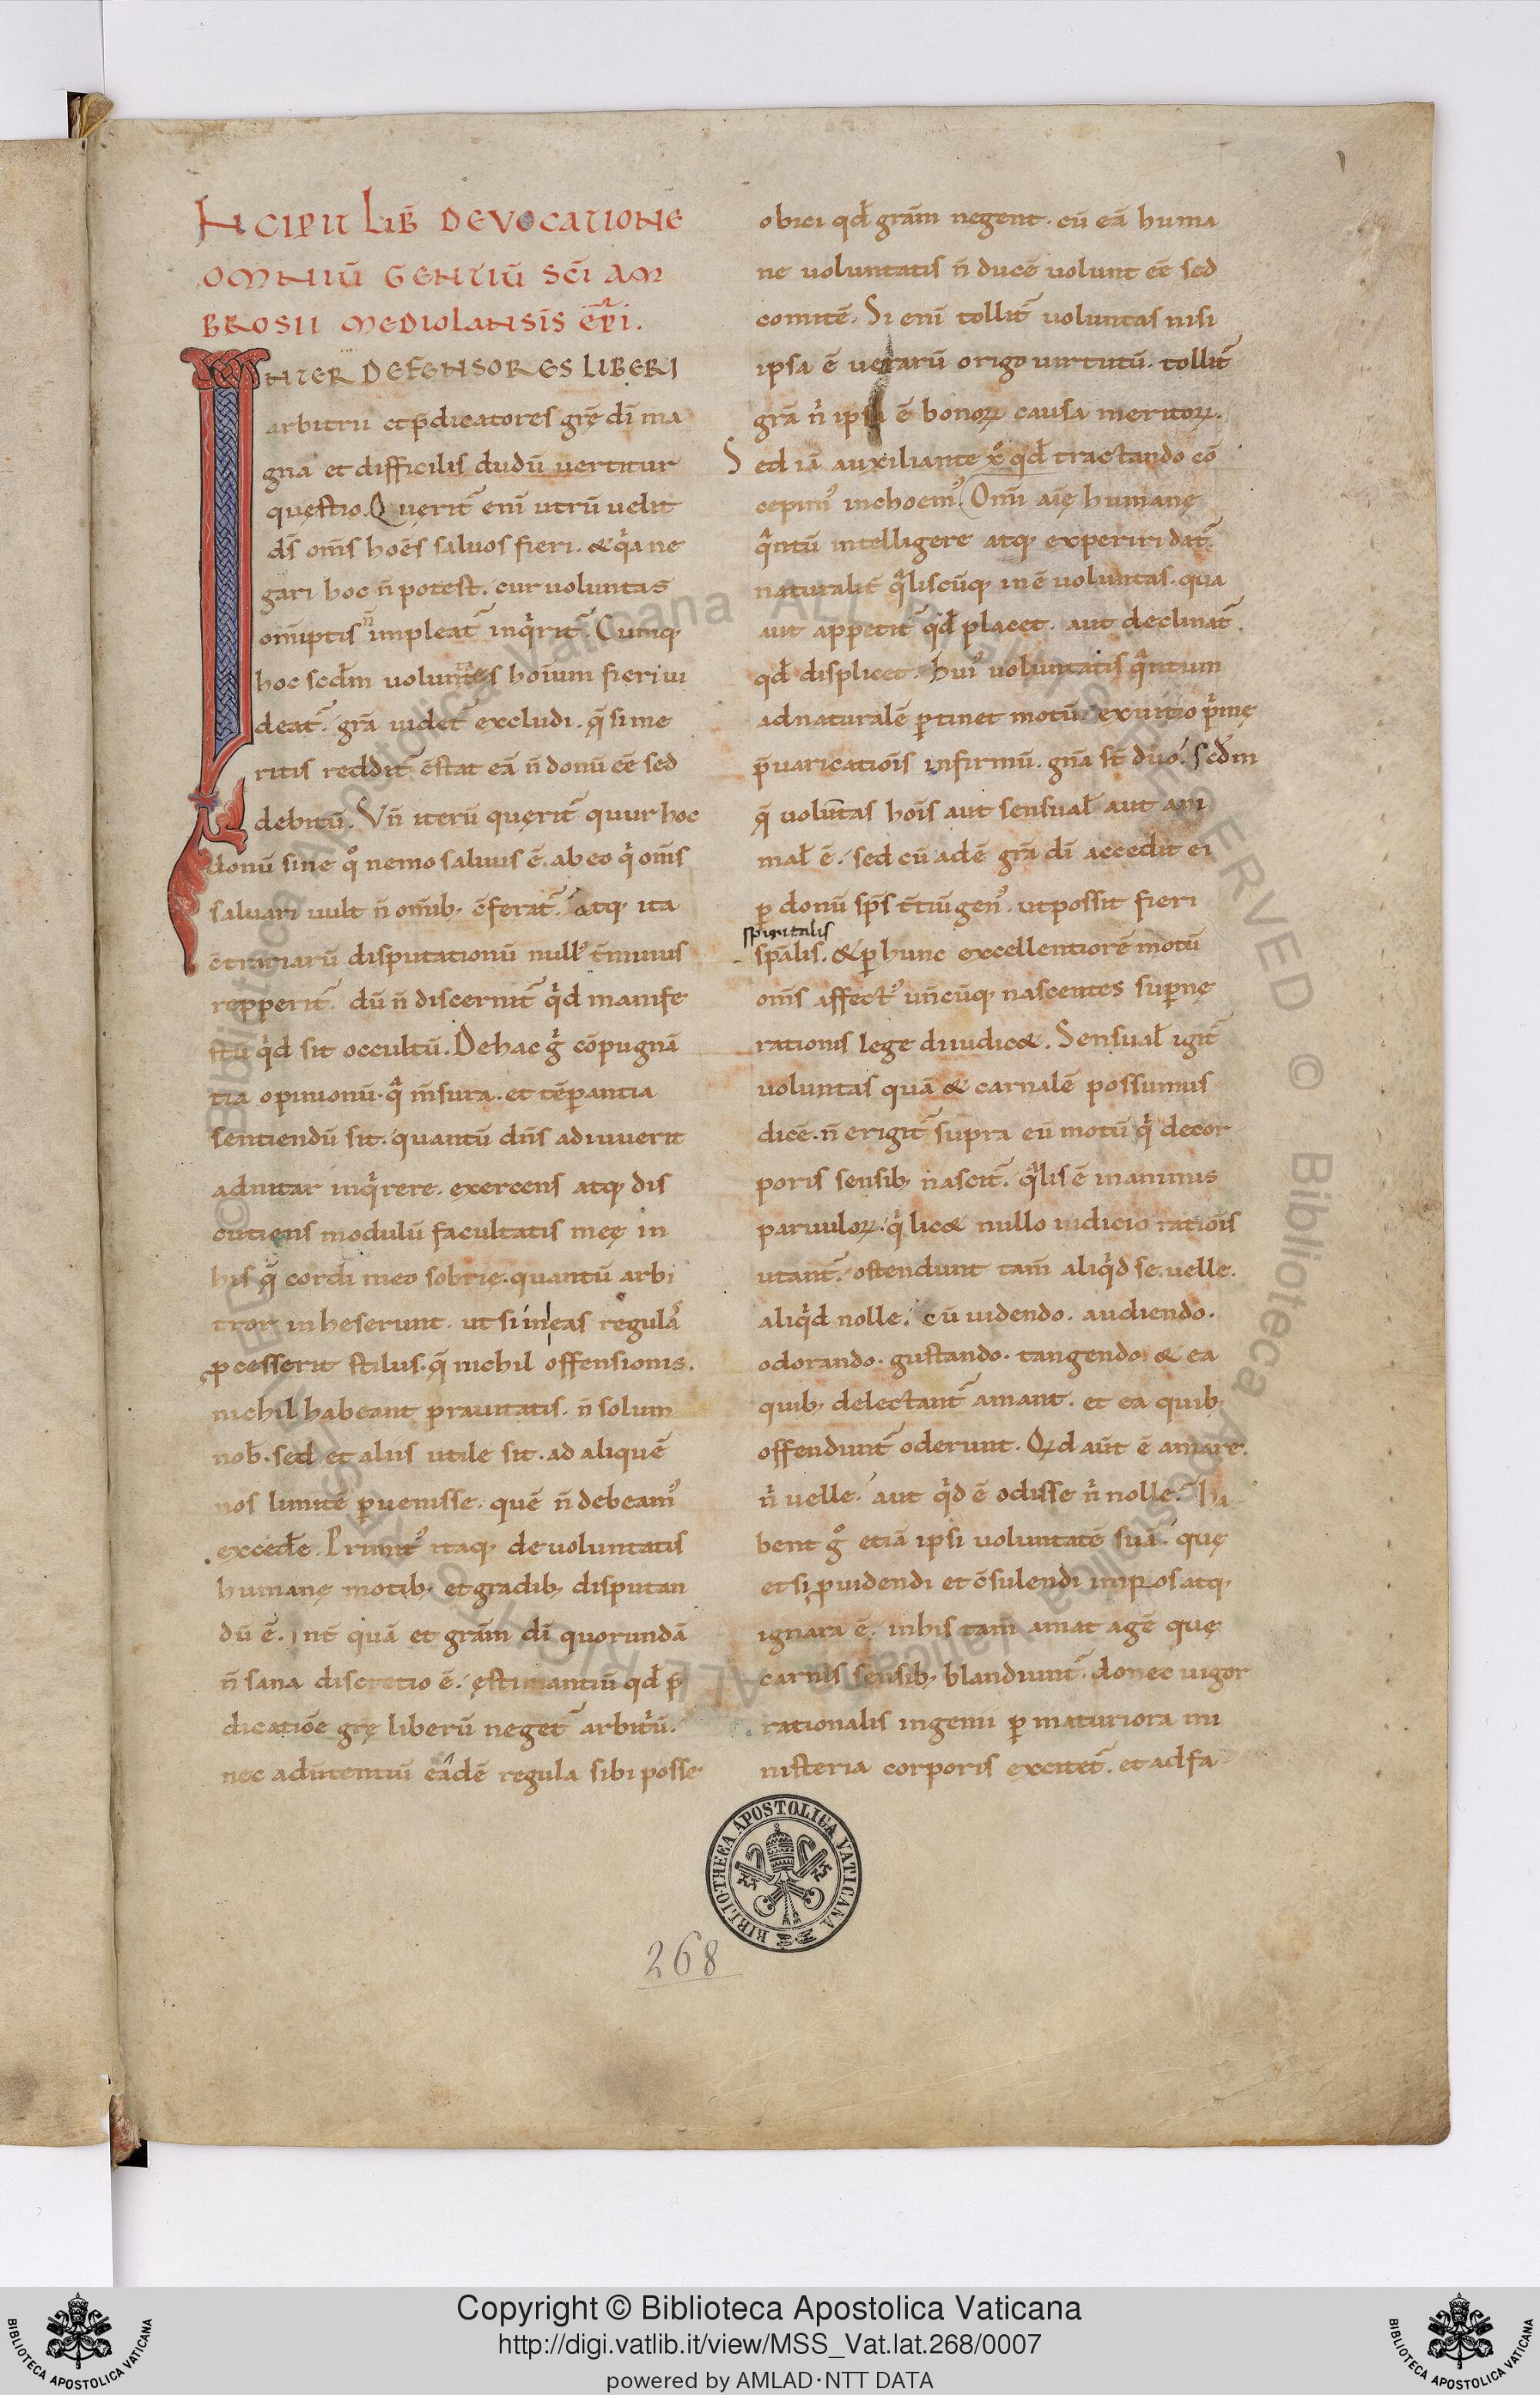 INCIPIT LIB̄ DE VOCATIONE
OMNIŪ GENTIŪ SCĪ AM
BROSII MEDIOLANSĪS EP̄I.
INTER DEFENSORES LIBERI
arbitrii et p̄dicatores grę̄ dī ma
gna et difficilis dudū vertitur
quęstio. Quęrit᷑ eni᷑ utrū uelit
ds̄ om̄s hoēs saluos fieri. & qͥa ne
gari hoc n̄ potest. cur uoluntas
om̄iptīs n̄ impleat᷑ inqͥrit᷑. Cumq;
hoc scd̄m uoluntates hoīum fieri ui
deat᷑. grā uidet᷑ excludi. q̄ si me
ritis reddit᷑ c̄stat eā n̄ donū eē sed
debitū. Vn̄ iterū quęrit᷑ quur hoc
donū sine qͦ nemo saluus ē. ab eo qͥ om̄s
saluari uult n̄ om̄ib; c̄ferat᷑. Atq; ita
c̄trariarū disputationū null᷒ t̄minus
repperit᷑. dū n̄ discernit᷑ qͥd manife
stū qͥd sit occultū. De hac gͥ cōpugnā
tia opinionū. qͣ m̄sura. et tēp̱antia
sentiendū sit. quantū dn̄s adiuuerit
adnitar inqͥrere. exercens atq; dis
cutiens modulū facultatis meę in
his q̄ cordi meo sobrię. quantū arbi
tror inheserunt. ut si in eas regulas
ꝓcesserit stilus. q̄ nichil offensionis.
nichil habeant prauitatis. n̄ solum
nob̄. sed et aliis utile sit. ad aliquē
nos limitē ꝑuenisse. quē n̄ debeam᷒
excedē. Primit᷒ itaq; de uoluntatis
humanę motib; et gradib; disputan
dū ē. Int̄ quā et grām dī quorundā
n̄ sana discretio ē. ęstimantiū qd̄ p̄
dicatiōe grę̄ liberū neget᷑ arbitͥū.
nec adūtentiū eādē regula sibi posse
obici qd̄ grām negent. cū eā huma
ne uoluntatis n̄ ducē uolunt eē sed
comitē. Si eni᷑ tollit᷑ uoluntas nisi
ipsa ē uerarū origo uirtutū. tollit᷑
grā nͥ ipsa ē bonoꝝ causa meritoꝝ.
Sed iā auxiliante xͦ qd̄ tractando cō
cepim᷒ inchoem᷒. Om̄i aīę humanę
qͣntū intelligere atq; experiri dat᷑.
naturalit̄ qͣliscūq; inē uoluntas. qua
aut appetit᷑ qd̄ placet. aut declinat᷑.
qd̄ displicet. Hui᷒ uoluntatis qͣntum
ad naturalē ꝑtinet motū. ex uitio pͥmę
p̄uaricatiōis infirmū. gn̄a st̄ duo. scd̄m
q̄ volūtas hoīs aut sensual̄ aut ani
mal̄ ē. sed cū adē grā dī accedit ei
ꝑ donū sp̄s t̄tiū gen᷒. ut possit fieri
spiritalis
sp̄alis. & ꝑ hunc excellentiorē motū
om̄s affect᷒ un̄cūq; nascentes supnę
rationis lege diiudic&. Sensual̄ igit᷑
voluntas quā & carnalē possumus
dicē. n̄ erigit᷑ supra eū motū qͥ de cor
poris sensib; nascit᷑. qͣlis ē in animis
paruuloꝝ. qͥ lic& nullo iudicio ratiōis
utant᷑. ostendunt tam̄ aliqͥd se uelle.
aliqͥd nolle. cū uidendo. audiendo.
odorando. gustando. tangendo & ea
quib; delectant᷑ amant. et ea quib;
offendunt᷑ oderunt. Qͥd aūt ē amare
nͥ uelle. aut qͥd ē odisse nͥ nolle. Ha
bent gͦ etiā ipsi uoluntatē suā. quę
etsi ꝓuidendi et c̄sulendi impos atq;
ignara ē. in his tam̄ amat agē quę
carnis sensib; blandiunt᷑. donec uigor
rationalis ingenii ꝑ maturiora mi
nisteria corporis excitet᷑. et ad fa
BIBLIOTHECA APOSTOLICA VATICANA
268
Copyright © Biblioteca Apostolica Vaticana
http://digi.vatlib.it/view/MSS_Vat.lat.268/0007
powered by AMLAD·NTT DATA
BIBLIOTECA APOSTOLICA VATICANA
BIBLIOTECA APOSTOLICA VATICANA